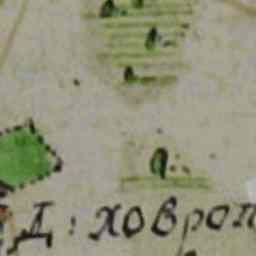 Д: ховроп